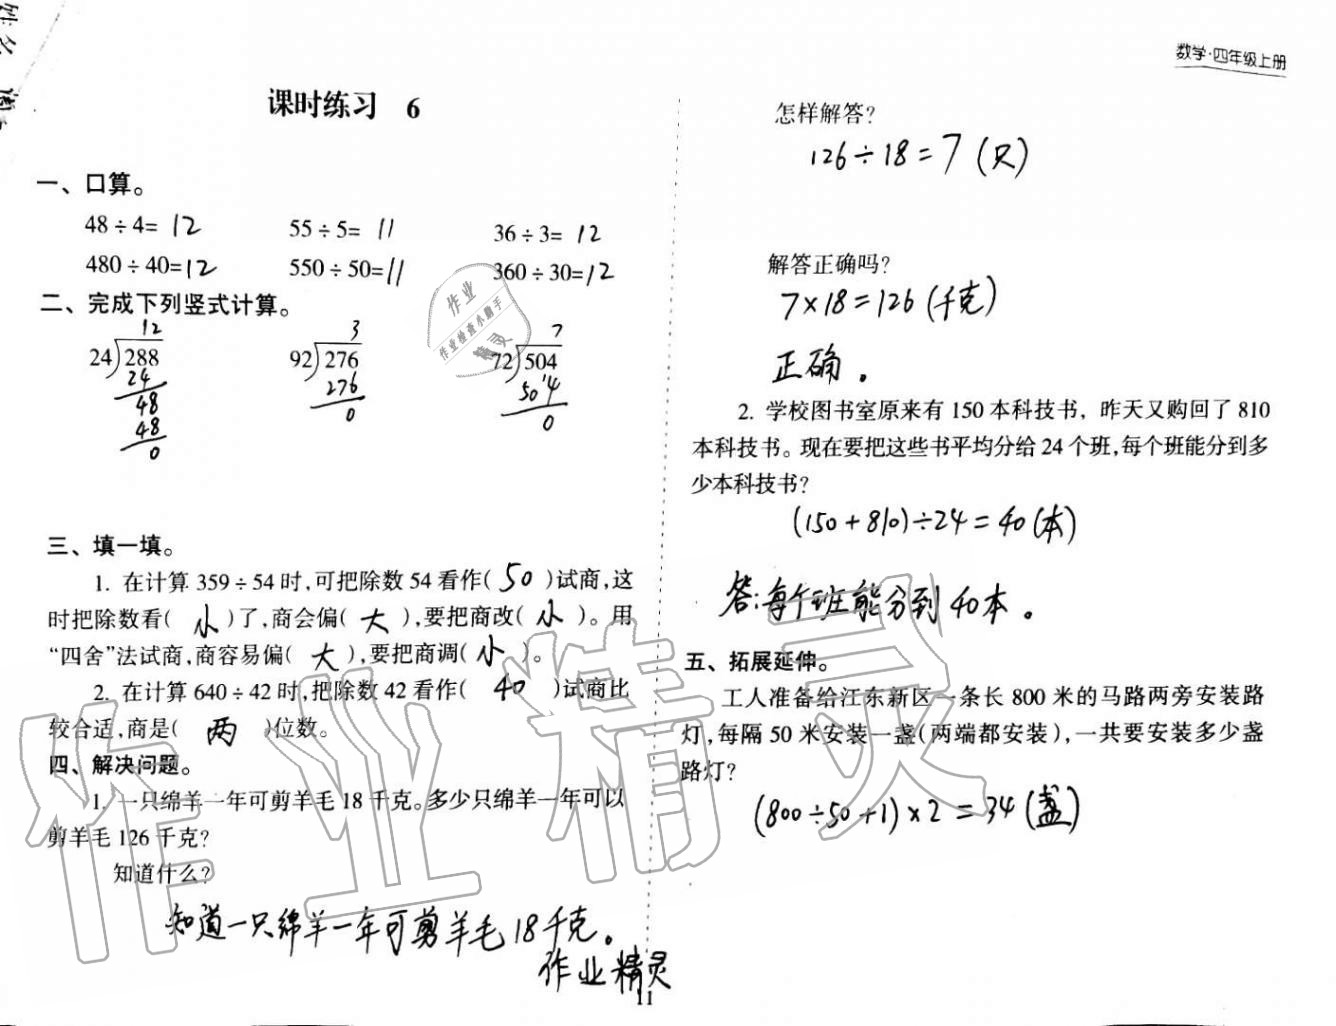 数学·四年级上册
课时练习 6
一、口算。
48÷4=12 55÷5=11 36÷3=12
480÷40=12 550÷50=11 360÷30=12
二、完成下列竖式计算。
12 3 7
24 288 92 276 72 504
24 276 504
48 0 0
48
0
三、填一填。
1. 在计算 359÷54 时,可把除数 54 看作( 50 )试商,这
时把除数看( 小 )了,商会偏( 大 ),要把商改( 小 )。用
“四舍”法试商,商容易偏( 大 ),要把商调( 小 )。
2. 在计算 640÷42 时,把除数 42 看作( 40 )试商比
较合适,商是( 两 )位数。
四、解决问题。
1. 一只绵羊一年可剪羊毛 18 千克。多少只绵羊一年可以
剪羊毛 126 千克?
知道什么?
知道一只绵羊一年可剪羊毛18千克。
作业精灵
11
怎样解答?
126÷18=7(只)
解答正确吗?
7×18=126(千克)
正确。
2. 学校图书室原来有 150 本科技书, 昨天又购回了 810
本科技书。现在要把这些书平均分给 24 个班,每个班能分到多
少本科技书?
(150+810)÷24=40(本)
答:每个班能分到40本。
五、拓展延伸。
工人准备给江东新区一条长 800 米的马路两旁安装路
灯,每隔 50 米安装一盏(两端都安装),一共要安装多少盏
路灯?
(800÷50+1)×2=34(盏)
作业
作业检查小助手
精灵
作业精灵